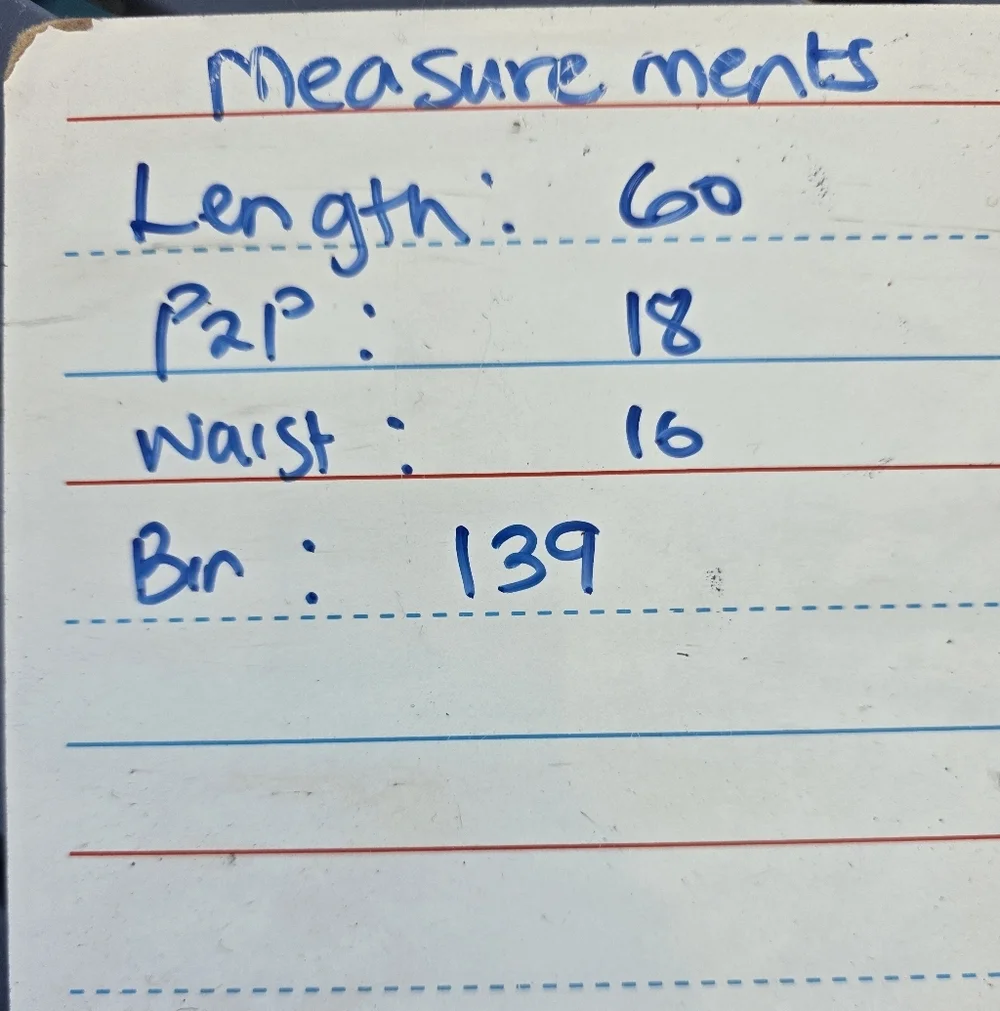 Measurements
Length: 60
P2P: 18
Waist: 16
Bin: 139